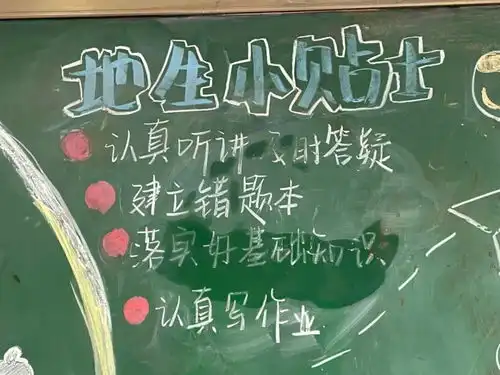 地生小贴士
认真听讲 及时答疑
建立错题本
落实好基础知识
认真写作业